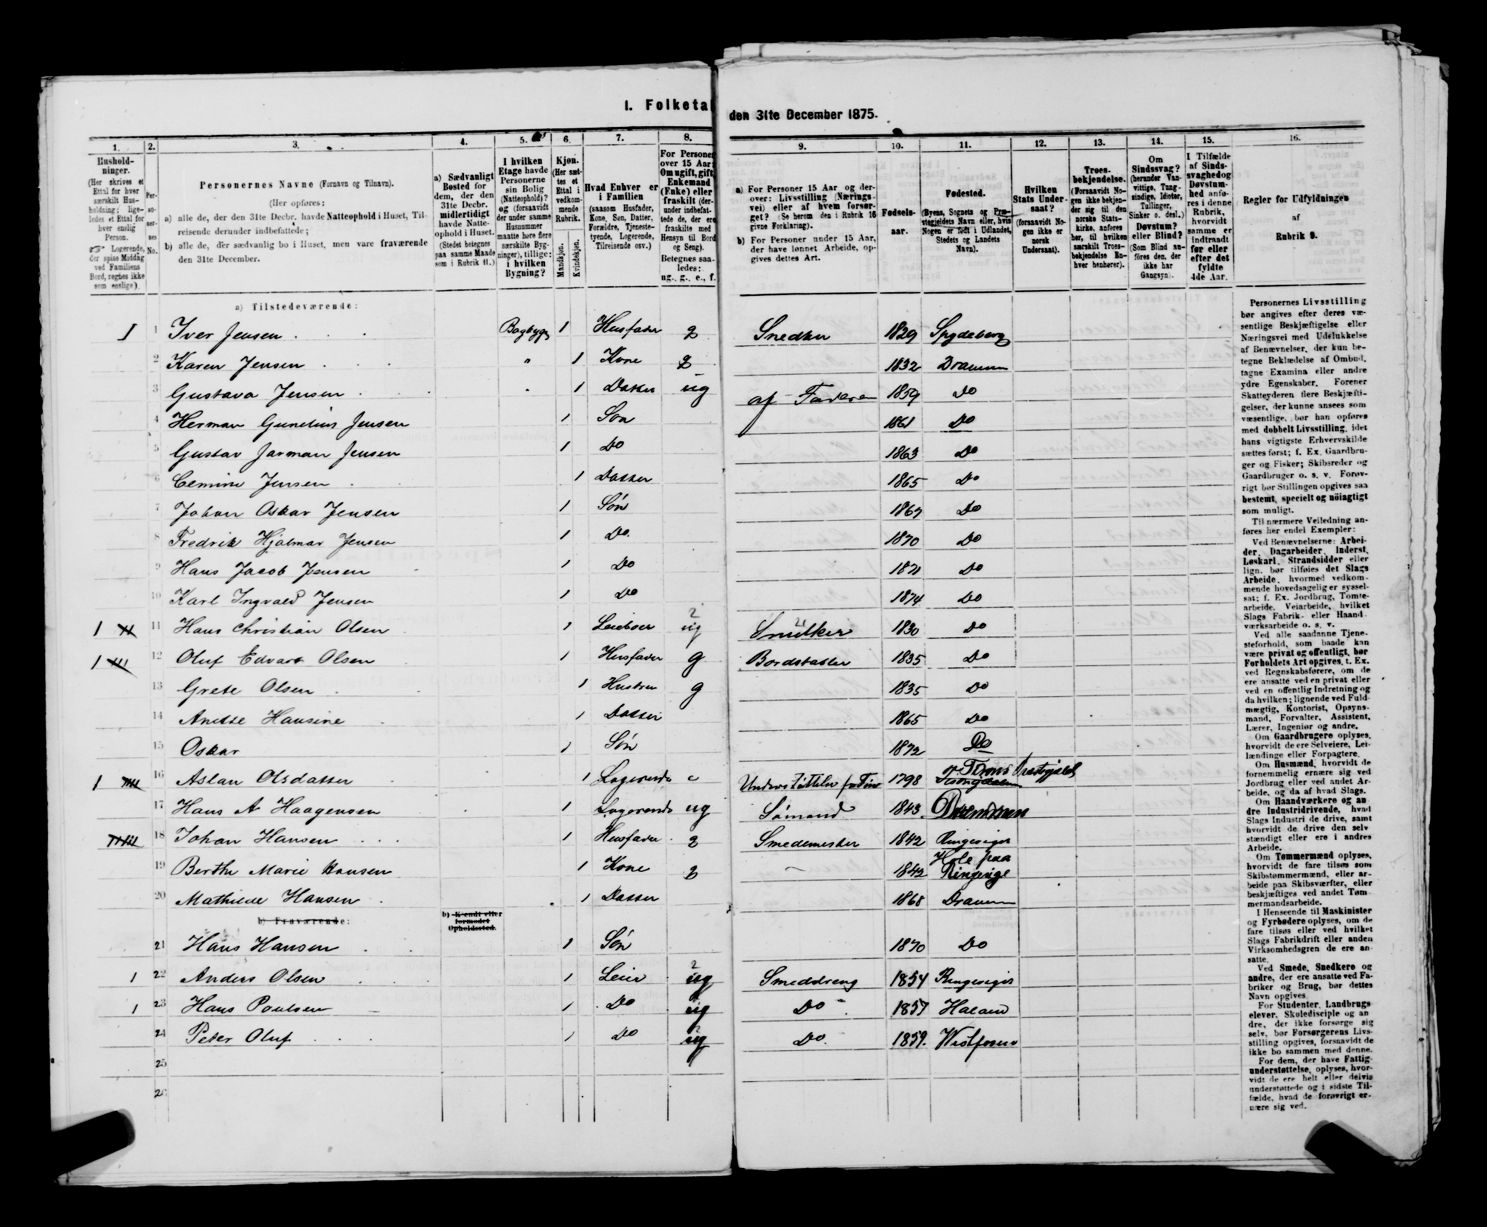 I. Folketal
den 31te December 1875.
1. 2. 3. 4. 5. 6. 7. 8. 9. 10. 11. 12. 13. 14. 15. 16.
Hushold-
ninger.
(Her skrives et
Ettal for hver
særskilt Hus-
holdning; lige-
ledes et Ettal for
hver enslig
Person.
Logerende,
der spise Middag
ved Familiens
Bord, regnes ikke
som enslige).
Per-
so-
ner-
nes
No.
Personernes Navne (Fornavn og Tilnavn).
(Her opføres:
a) alle de, der den 31te Decbr. havde Natteophold i Huset, Til-
reisende derunder indbefattede;
b) alle de, der sædvanlig bo i Huset, men vare fraværende
den 31te December.
a) Sædvanligt
Bosted for
dem, der den
31te Decbr.
midlertidigt
havde Natte-
ophold i Huset.
(Stedet betegnes
paa samme Maade
som i Rubrik 11.)
I hvilken
Etage havde
Personerne
sin Bolig
(Natteophold)?
og (forsaavidt
der under samme
Husnummer
maatte høre flere
særskilte Byg-
ninger), tillige:
i hvilken
Bygning?
Kjøn.
(Her sæt-
tes et
Ettal i
vedkom-
mende
Rubrik.
Mandkjøn.
Kvindekjøn.
Hvad Enhver er
i Familien
(saasom Husfader,
Kone, Søn, Datter,
Forældre, Tjeneste-
tyende, Logerende,
Tilreisende osv.)
For Personer
over 15 Aar:
Om ugift, gift,
Enkemand
(Enke) eller
fraskilt (der-
under indbefat-
tede de, der ere
fraskilte med
Hensyn til Bord
og Seng).
Betegnes saa-
ledes:
ug. g. e., f.
a) For Personer 15 Aar og der-
over: Livsstilling (Nærings-
vei) eller af hvem forsør-
get? (Se herom den i Rubrik 16
givne Forklaring).
b) For Personer under 15 Aar,
der have lønnet Arbeide, op-
gives dettes Art.
Fødsels-
aar.
Fødested.
(Byens, Sognets og Præ-
stegjeldets Navn eller, hvis
Nogen er født i Udlandet,
Stedets og Landets
Navn).
Hvilken
Stats Under-
saat?
(forsaavidt No-
gen ikke er
norsk
Undersaat).
Troes-
bekjendelse.
(Forsaavidt No-
gen ikke bekjen-
der sig til den
norske Stats-
kirke, anføres
her, til hvilken
særskilt Troes-
bekjendelse En-
hver henhører).
Om
Sindssvag?
(herunder Van-
vittige, Tung-
sindige, Idioter,
Tullinger,
Sinker o. desl.)
Døvstum?
eller Blind?
(Som Blind an-
føres den, der
ikke har
Gangsyn).
I Tilfælde
af Sinds-
svaghed og
Døvstum-
hed anfø-
res i denne
Rubrik,
hvorvidt
samme er
indtraadt
før eller
efter det
fyldte
4de Aar.
Regler for Udfyldningen
af
Rubrik 9.
a) Tilstedeværende:
1 1 Iver Jensen Bagbygn 1 Husfader g Snedker 1829 Spydeberg
2 Karen Jensen " 1 Kone g 1832 Dramm
3 Gustava Jensen " 1 Datter ug af Faderen 1859 Do
4 Herman Gunelius Jensen 1 Søn 1861 Do
5 Gustav Jarman Jensen 1 Do 1863 Do
6 Jensen 1 Datter 1865 Do
7 Johan Oskar Jensen 1 Søn 1867 Do
8 Fredrik Hjalmar Jensen 1 Do 1870 Do
9 Hans Jacob Jensen 1 Do Do
10 Karl Ingvald Jensen 1 Do 1874 Do
1 11 Hans Christian Olsen 1 ug 1830 Do
1 12 Oluf Edvart Olsen 1 Husfader g Bordstabler 1835 Do
13 Grete Olsen 1 Hustru g 1835 Do
14 Anette Hansine 1 Datter 1865 Do
15 Oskar 1 Søn 1872 Do
1 16 Aslau Olsdatter 1 Logerende e 1798
17 Hans A Haagensen 1 Logerende ug Sømand 1843
18 Johan Hansen 1 Husfader g Smedemester 1842 Ringerige
19 Berthe Marie Hansen 1 Kone g 1842 Hole paa Ringerige
20 Mathilde Hansen 1 Datter 1868 Dramm
b) Fraværende:
b) Kendt eller
formodet
Opholdssted.
21 Hans Hansen 1 Søn 1870 Do
1 22 Anders Olsen 1 ug Smeddreng 1854 Ringerige
1 23 Hans Poulsen 1 Do ug Do 1857
24 Peter Oluf 1 Do ug Do 1859
25
26
Personernes Livsstilling
bør angives efter deres væ-
sentlige Beskjæftigelse eller
Næringsvei med Udelukkelse
af Benævnelser, der kun be-
tegne Beklædelse af Ombud,
tagne Examina eller andre
ydre Egenskaber. Forener
Skatteyderen flere Beskjæfti-
gelser, der kunne ansees som
væsentlige, bør han opføres
med dobbelt Livsstilling, idet
hans vigtigste Erhvervskilde
sættes først; f. Ex. Gaardbru-
ger og Fisker; Skibsreder og
Gaardbruger o. s. v. Forøv-
rigt bør Stillingen opgives saa
bestemt, specielt og nøiagtigt
som muligt.
Til nærmere Veiledning an-
føres her endel Exempler:
Ved Benævnelserne: Arbei-
der, Dagarbeider, Inderst,
Løskarl, Strandsidder eller
lign. bør tilføies det Slags
Arbeide, hvormed vedkom-
mende hovedsagelig er syssel-
sat; f. Ex. Jordbrug, Tomte-
arbeide, Veiarbeide, hvilket
Slags Fabrik- eller Haand-
værksarbeide o. s. v.
Ved alle saadanne Tjene-
steforhold, som baade kan
være privat og offentligt, bør
Forholdets Art opgives, t. Ex.
ved Regnskabsførere, om de
ere ansatte ved en privat eller
ved en offentlig Indretning og
da hvilken; lignende ved Fuld-
mægtig, Kontorist, Opsyns-
mand, Forvalter, Assistent,
Lærer, Ingeniør og andre.
Om Gaardbrugere oplyses,
hvorvidt de ere Selveiere, Lei-
lændinge eller Forpagtere.
Om Husmænd, hvorvidt de
fornemmelig ernære sig ved
Jordbrug eller ved andet Ar-
beide, og da af hvad Slags.
Om Haandværkere og an-
dre Industridrivende, hvad
Slags Industri de drive, samt
hvorvidt de drive den selv-
stændigt eller ere i andres
Arbeide.
Om Tømmermænd oplyses,
hvorvidt de fare tilsøs som
Skibstømmermænd, eller ar-
beide paa Skibsværfter, eller
beskjæftiges ved andet Tøm-
mermandsarbeide.
I Henseende til Maskinister
og Fyrbødere oplyses, om de
fare tilsøs eller ved hvilket
Slags Fabrikdrift eller anden
Virksomhedsgren de ere an-
satte.
Ved Smede, Snedkere og
andre, der ere ansatte ved Fa-
briker og Brug, bør dettes
Navn opgives.
For Studenter, Landbrugs-
elever, Skoledisciple og an-
dre, der ikke forsørge sig
selv, bør Forsørgerens Livs-
stilling opgives, forsaavidt de
ikke bo sammen med denne.
For dem, der have Fattig-
understøttelse, oplyses, hvor-
vidt de ere helt eller delvis
understøttede og i sidste Til-
fælde, hvad de forøvrigt er-
nære sig ved.